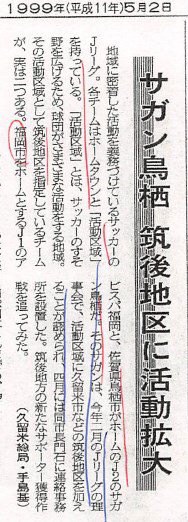 1999年(平成11年)5月2日
サガン鳥栖 筑後地区に活動拡大
地域に密着した活動を義務づけているサッカーの
Jリーグ。各チームはホームタウンと「活動区域」
を持っている。「活動区域」とは、サッカーのすそ
野を広げるため、球団がさまざまな活動をする地域。
その活動区域として筑後地区を指定しているチーム
が、実は二つある。福岡市をホームとするJ1のア
ビスパ福岡と、佐賀県鳥栖市がホームのJ2のサガ
ン鳥栖だ。そのサガンは、今年二月のJリーグの理
事会で、活動区域に久留米市などの筑後地区を加え
ることが認められ、四月には同市長門石に連絡事務
所を設置した。筑後地方の新たなサポーター獲得作
戦を追ってみた。
(久留米総局・手島基)